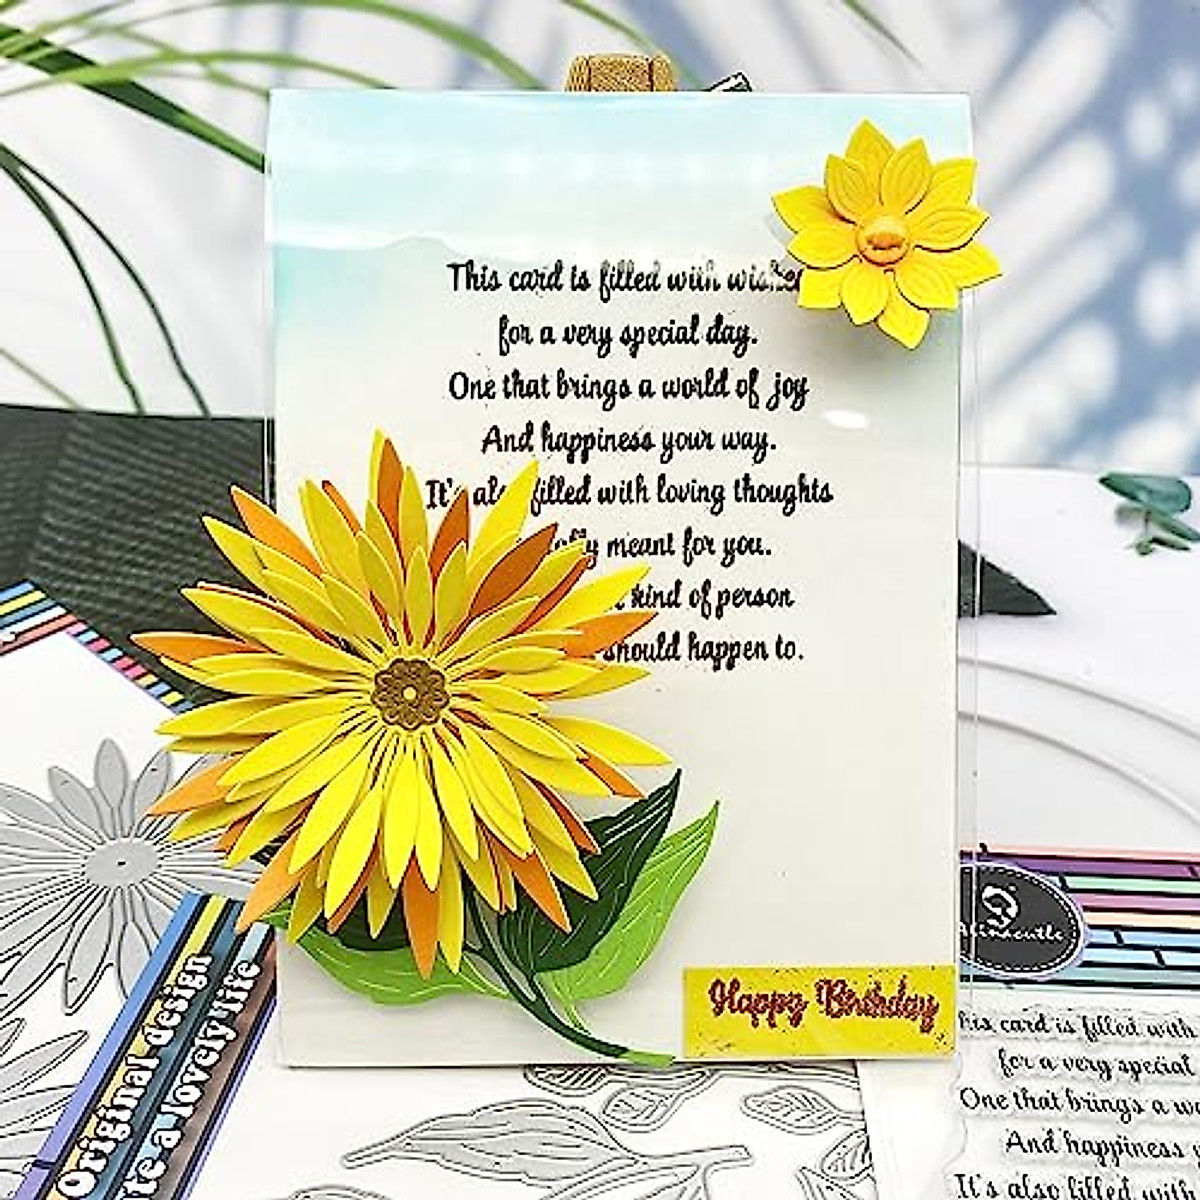 This card is filled with wishes
for a very special day.
One that brings a world of joy
And happiness your way.
It's also filled with loving thoughts
meant for you.
kind of person
should happen to.
Happy Birthday
Alinacutle
Original design
a lovely life
his card is filled with
for a very special
One that brings a
And happiness
It's also filled with